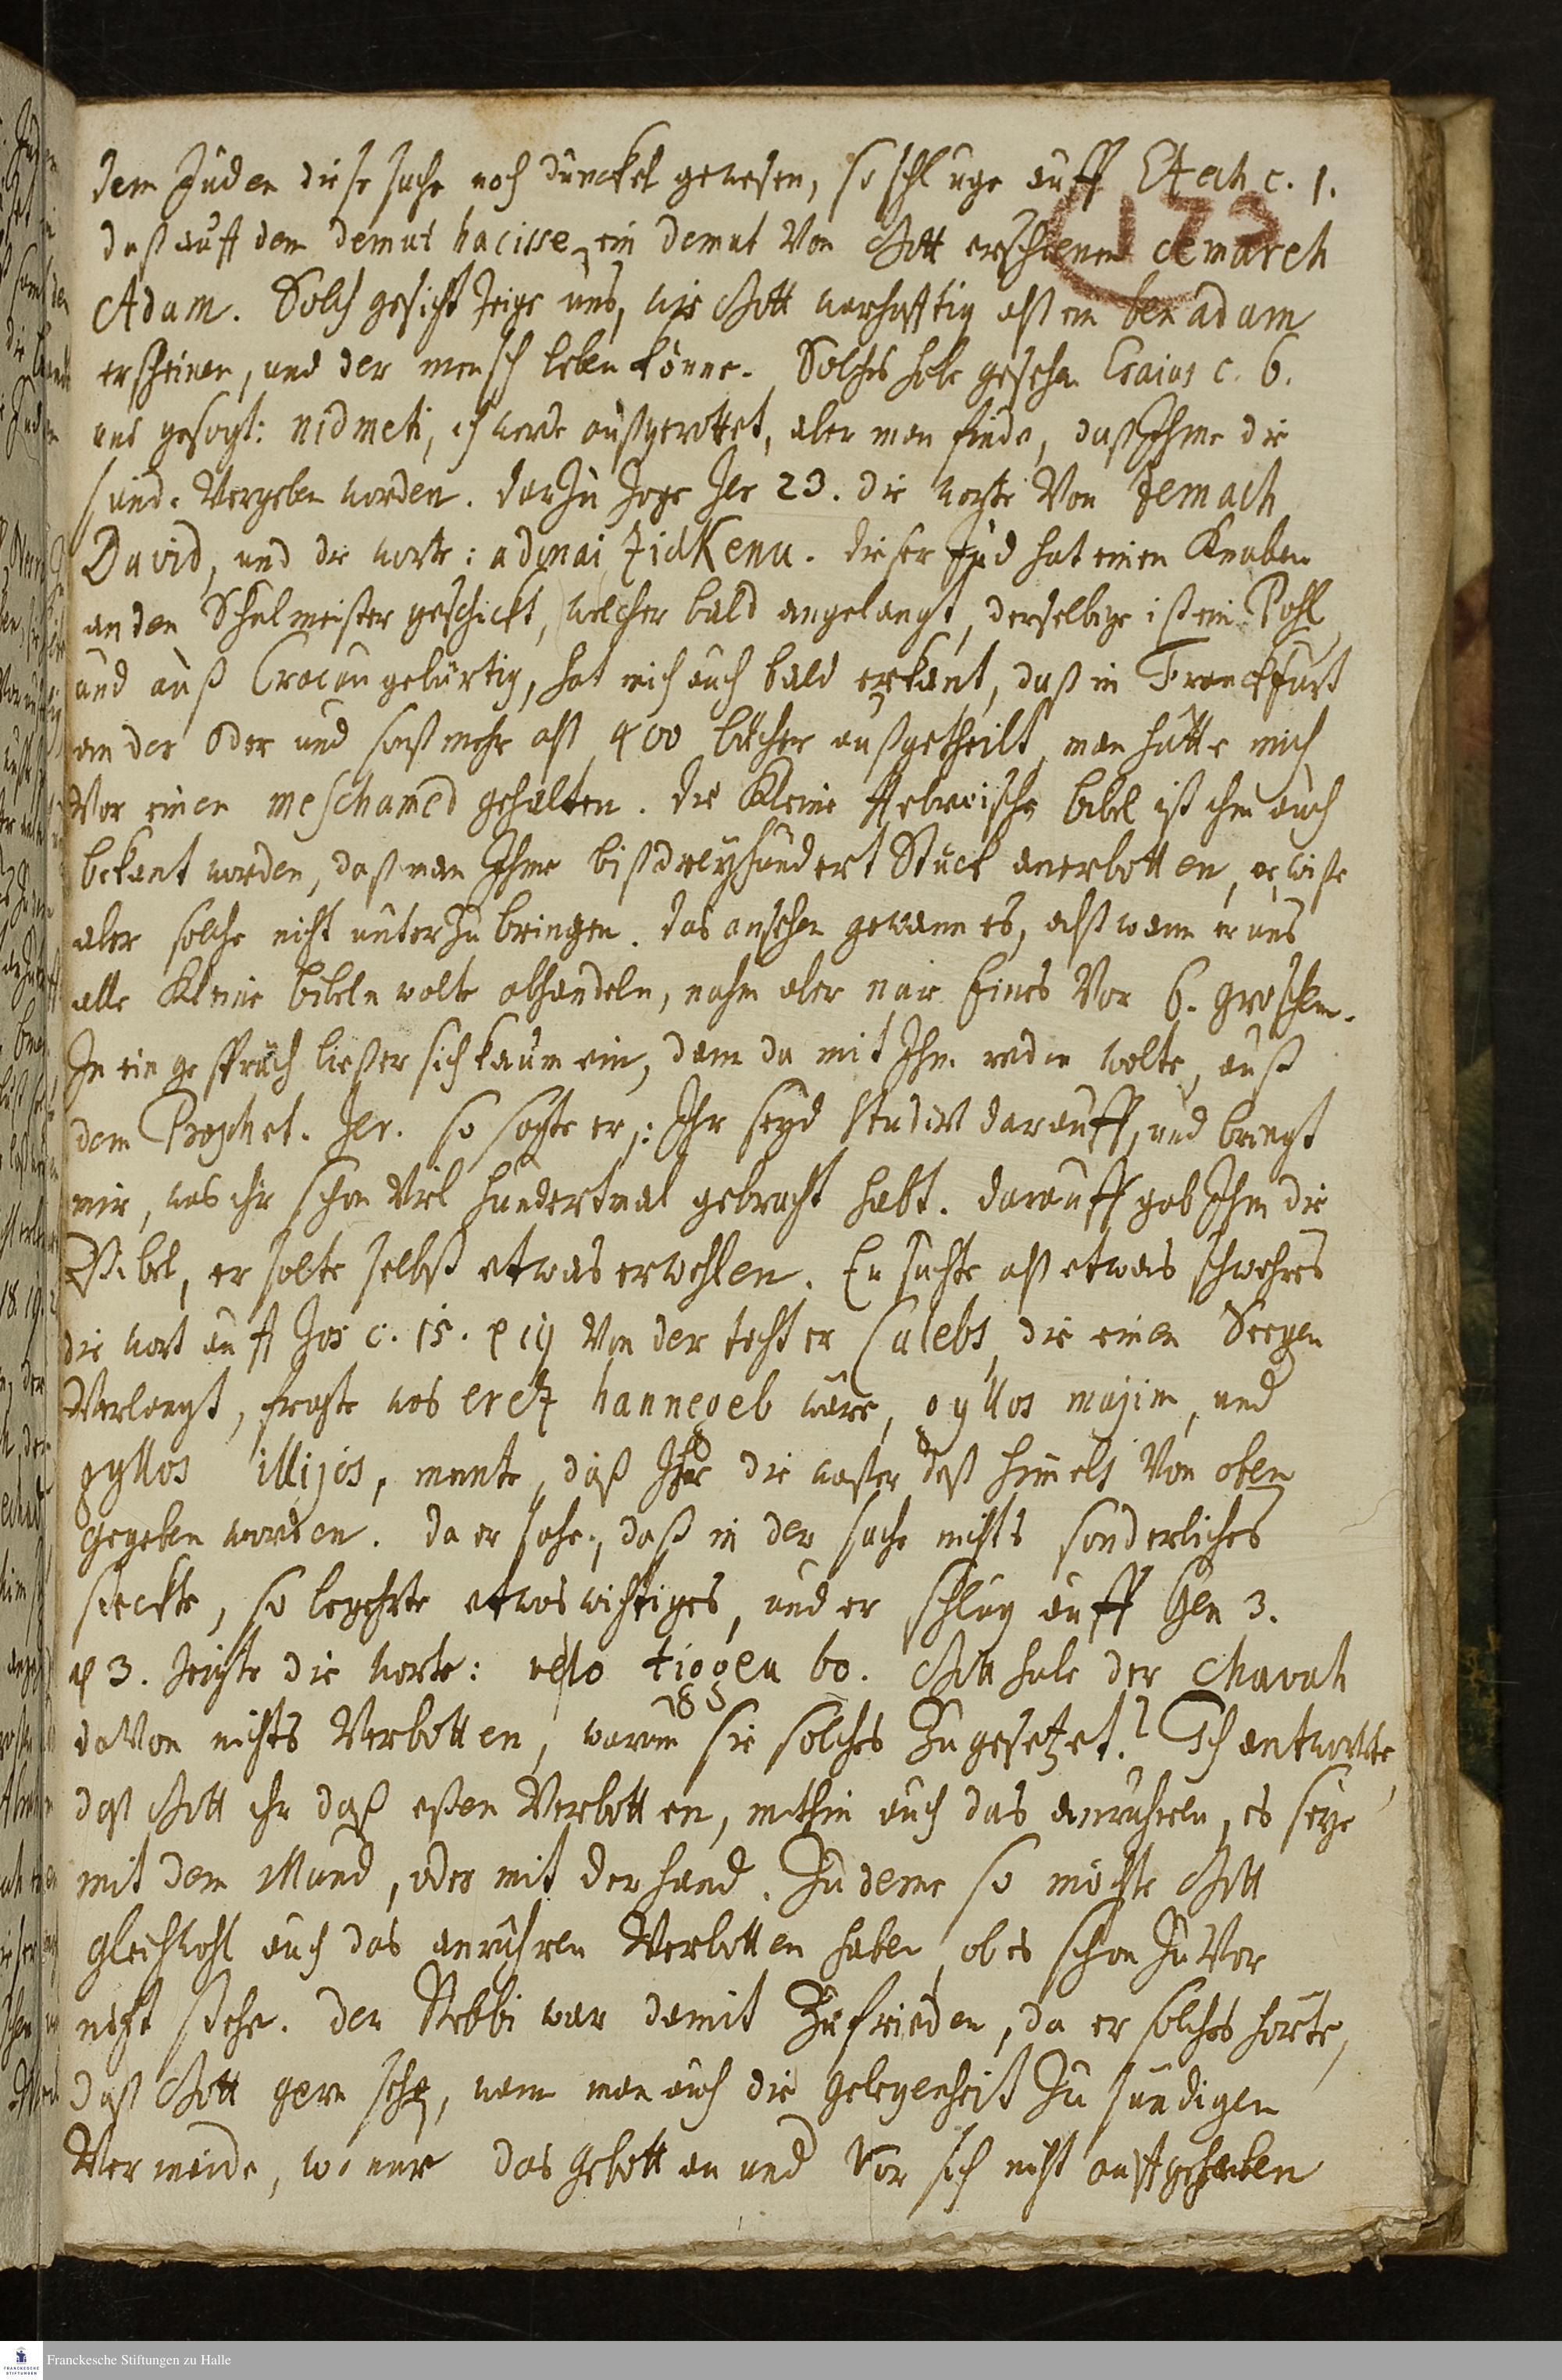 173
dem Juden diese sache noch dunckel gewesen, so schluge auff Ezech c. 1.
daß auff dem demut hacisse, ein demut Von Gott erschienen cemareh
Adam. Solch gesicht zeige uns, wie Gott warhafftig alß ein ben adam
erscheinen, und der mensch leben könne. Solches habe gesehen Esaias c. 6.
und gesagt: nidmeti, ich werde außgerottet, aber man finde, daß Ihme die
sünde Vergeben worden. darzu zoge Jer 23. die worte Von Zemach
David, und die worte: adonai Zidkenu. dieser Jud hat einen Knaben
an den Schulmeister geschickt, welcher bald angelangt, derselbige ist ein Pohl
und auß Cracau gebürtig, hat mich auch bald erkant, daß in Franckfurt
an der Oder und sonst mehr alß 400 bücher außgetheilt, man hätte mich
Vor einen meschamed gehalten. die Kleine Hebreische bibel ist ihm auch
bekant worden, daß man Ihme biß dreyhundert Stück anerbotten, er wiße
aber solche nicht unterzubringen. das ansehen gewann es, alß wann er uns
alle Kleine bibeln wolte abhandeln, nahm aber nur Eines Vor 6. groschen.
In ein gespräch ließ er sich kaum ein, dann da mit Ihm reden wolte, auß
dem Prophet. Jer. so sagte er: Ihr seyd studirt darauff, und bringt
mir, was ihr schon Viel hundertmal gebracht habt. darauff gab Ihm die
Bibel, er solte selbst etwas erwehlen. Er suchte alß etwas schwehres
die wort auff Jos c. 15. 19 Von der tochter Calebs, die einen Seegen
Verlangt, fragte was eretz hannegeb wäre, gyllos majim, und
gyllos illijos, meinte, daß Ihr die waßer deß himels Von oben
gegeben worden. da er sahe, daß in der sache nichts sonderliches
steckte, so begehrte etwas wichtiges, und er schlug auff Gen 3.
3. zeigte die worte: velo tiggeu bo. Gott habe der Chavah
davon nichts Verbotten, warum sie solches zugesetzet? Ich antwortete
daß Gott ihr daß eßen Verbotten, mithin auch das anruhren, es seye
mit dem Mund, oder mit der hand. Zu deme so möchte Gott
gleichwohl auch das anrühren Verbotten haben, ob es schon zuvor
nicht stehe. der Rebbi war damit zufrieden, da er solches hörte,
daß Gott gern sehe, wann man auch die gelegenheit zu sündigen
Vermeide, wo nur das gebotten und Vor sich nicht auffgehaben
185
Franckesche Stiftungen zu Halle